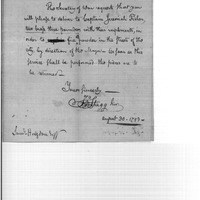 The Secretary of War requests that you
will please to deliver to Captain Jeremiah Fisher,
two brass three pounders with their implements, in
order to fire in the front of the
city, by direction of the Mayor. As soon as this
service shall be performed the pieces are to
be returned.
Yours sincerely
Jno Stagg Jun
August 30. 1793
Saml Hodgdon Esqr